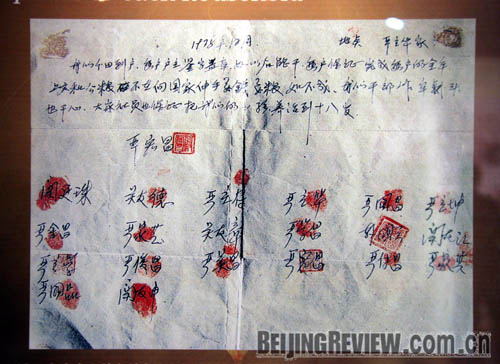 Household
1978年12月. 地点 严立华家
我们分田到户,每户户主签字盖章,如以后能干,每户保证完成每户的全年
上交和公粮,不在向国家伸手要钱要粮,如不成,我们干部作牢刹头
也干心,大家社员也保证把我们的小孩养活到十八岁
严宏昌
关廷珠 关友德 严立符 严立华 严国昌 严立坤
严金昌 严家芝 关友章 严学昌 韩国云 关友江
严立学 严俊昌 严美昌 严宏昌 严付昌 严家其
严国品 关友申
BEIJINGREVIEW.com.cn